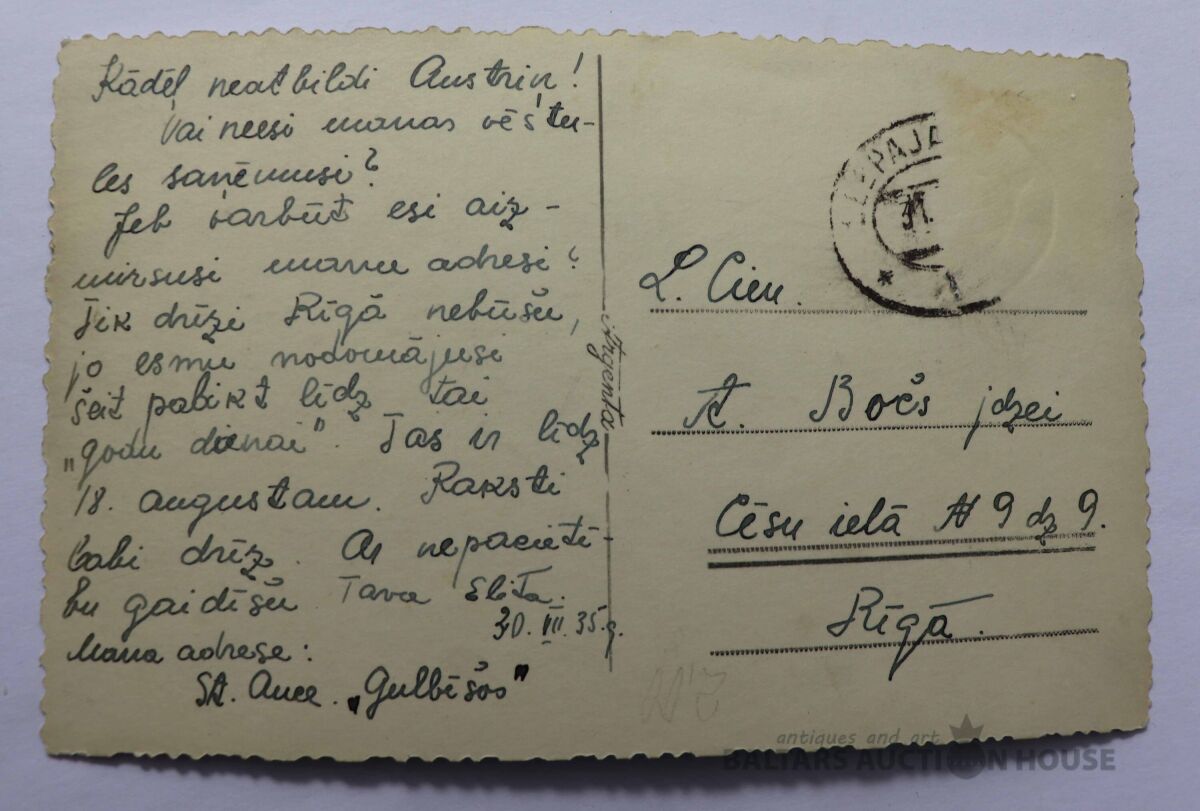 Kādēļ neatbildi Austrin!
Vai neesi manas vēstu-
les saņēmusi?
Jeb varbūt esi aiz-
mirsusi manu adresi?
Tik drīzi Rīgā nebūšu,
jo esmu nodomājusi
šeit palikt līdz tai
„godu dienai". Tas ir līdz
18. augustam. Raksti
labi drīz. Ar nepacietī-
bu gaidīšu Tava Elita.
30. VII. 35. g.
Mana adrese:
St. Auce. „Gulbīšos"
Argenta
LIEPAJA
31.
L. Cien.
A. Bočs jdzei
Cēsu ielā № 9 dz 9.
Rīgā.
antiques and art
BALTARS AUCTION HOUSE